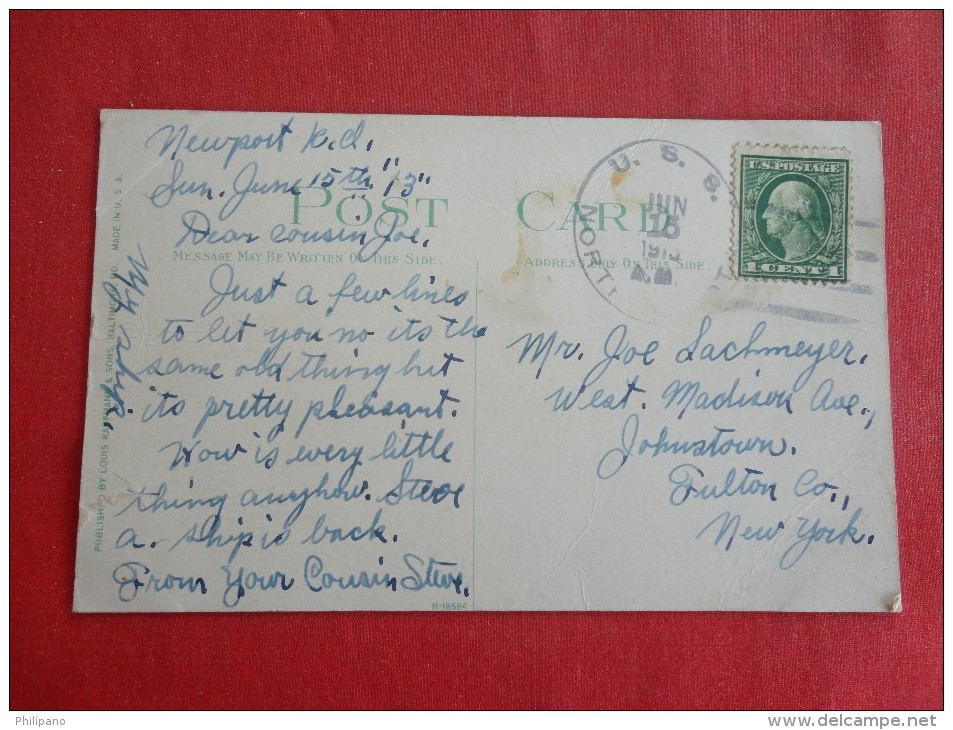 Newport R.I.
Sun. June 15th "13"
POST CARD
Dear Cousin Joe,
MESSAGE MAY BE WRITTEN ON THIS SIDE.
Just a few lines
to let you no its the
same old thing but
its pretty pleasant.
How is every little
thing anyhow. Steve
a. ship is back.
From Your Cousin Steve.
My ship.
PUBLISHED BY LOUIS KAUFMANN & SONS, BALTIMORE, MD. MADE IN U.S.A.
R-18584
ADDRESS ONLY ON THIS SIDE.
U. S. S.
NORTH
JUN
1913
U.S. POSTAGE
1 CENT 1
Mr. Joe Lachmeyer.
West. Madison Ave.,
Johnstown.
Fulton Co.,
New York.
Philipano
www.delcampe.net